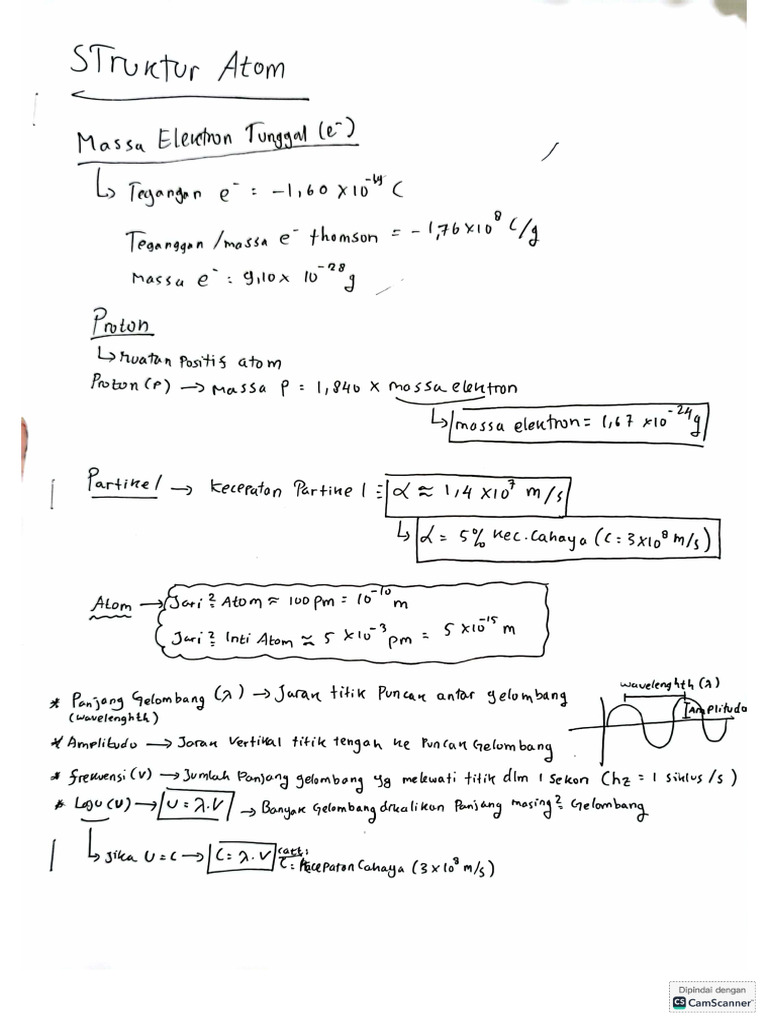 STruktur Atom
Massa Elektron Tunggal (e⁻)
↳ Tegangan e⁻ = -1,60 × 10⁻¹⁹ C
Teganggan /massa e⁻ thomson = -1,76 × 10⁸ C/g
Massa e⁻ : 9,10 × 10⁻²⁸ g
Proton
↳ muatan Positif atom
Proton (P) → Massa P = 1,840 × massa elektron
↳ massa elektron = 1,67 × 10⁻²⁴ g
Partikel → Kecepatan Partikel = α ≈ 1,4 × 10⁷ m/s
↳ α = 5% kec. Cahaya (C = 3×10⁸ m/s)
Atom → Jari² Atom ≈ 100 pm = 10⁻¹⁰ m
Jari² Inti Atom ≈ 5 × 10⁻³ pm = 5 × 10⁻¹⁵ m
wavelenghth (λ)
Amplitudo
* Panjang Gelombang (λ) → Jarak titik Puncak antar gelombang
(wavelenghth)
* Amplitudo → Jarak Vertikal titik tengah ke Puncak Gelombang
* frekuensi (v) → Jumlah Panjang gelombang yg melewati titik dlm 1 sekon (hz = 1 siklus/s)
* Laju (U) → U = λ.V → Banyak Gelombang dikalikan Panjang masing² Gelombang
↳ Jika U = C → C = λ.V catt:
C = Kecepatan Cahaya (3 × 10⁸ m/s)
Dipindai dengan
CS CamScanner